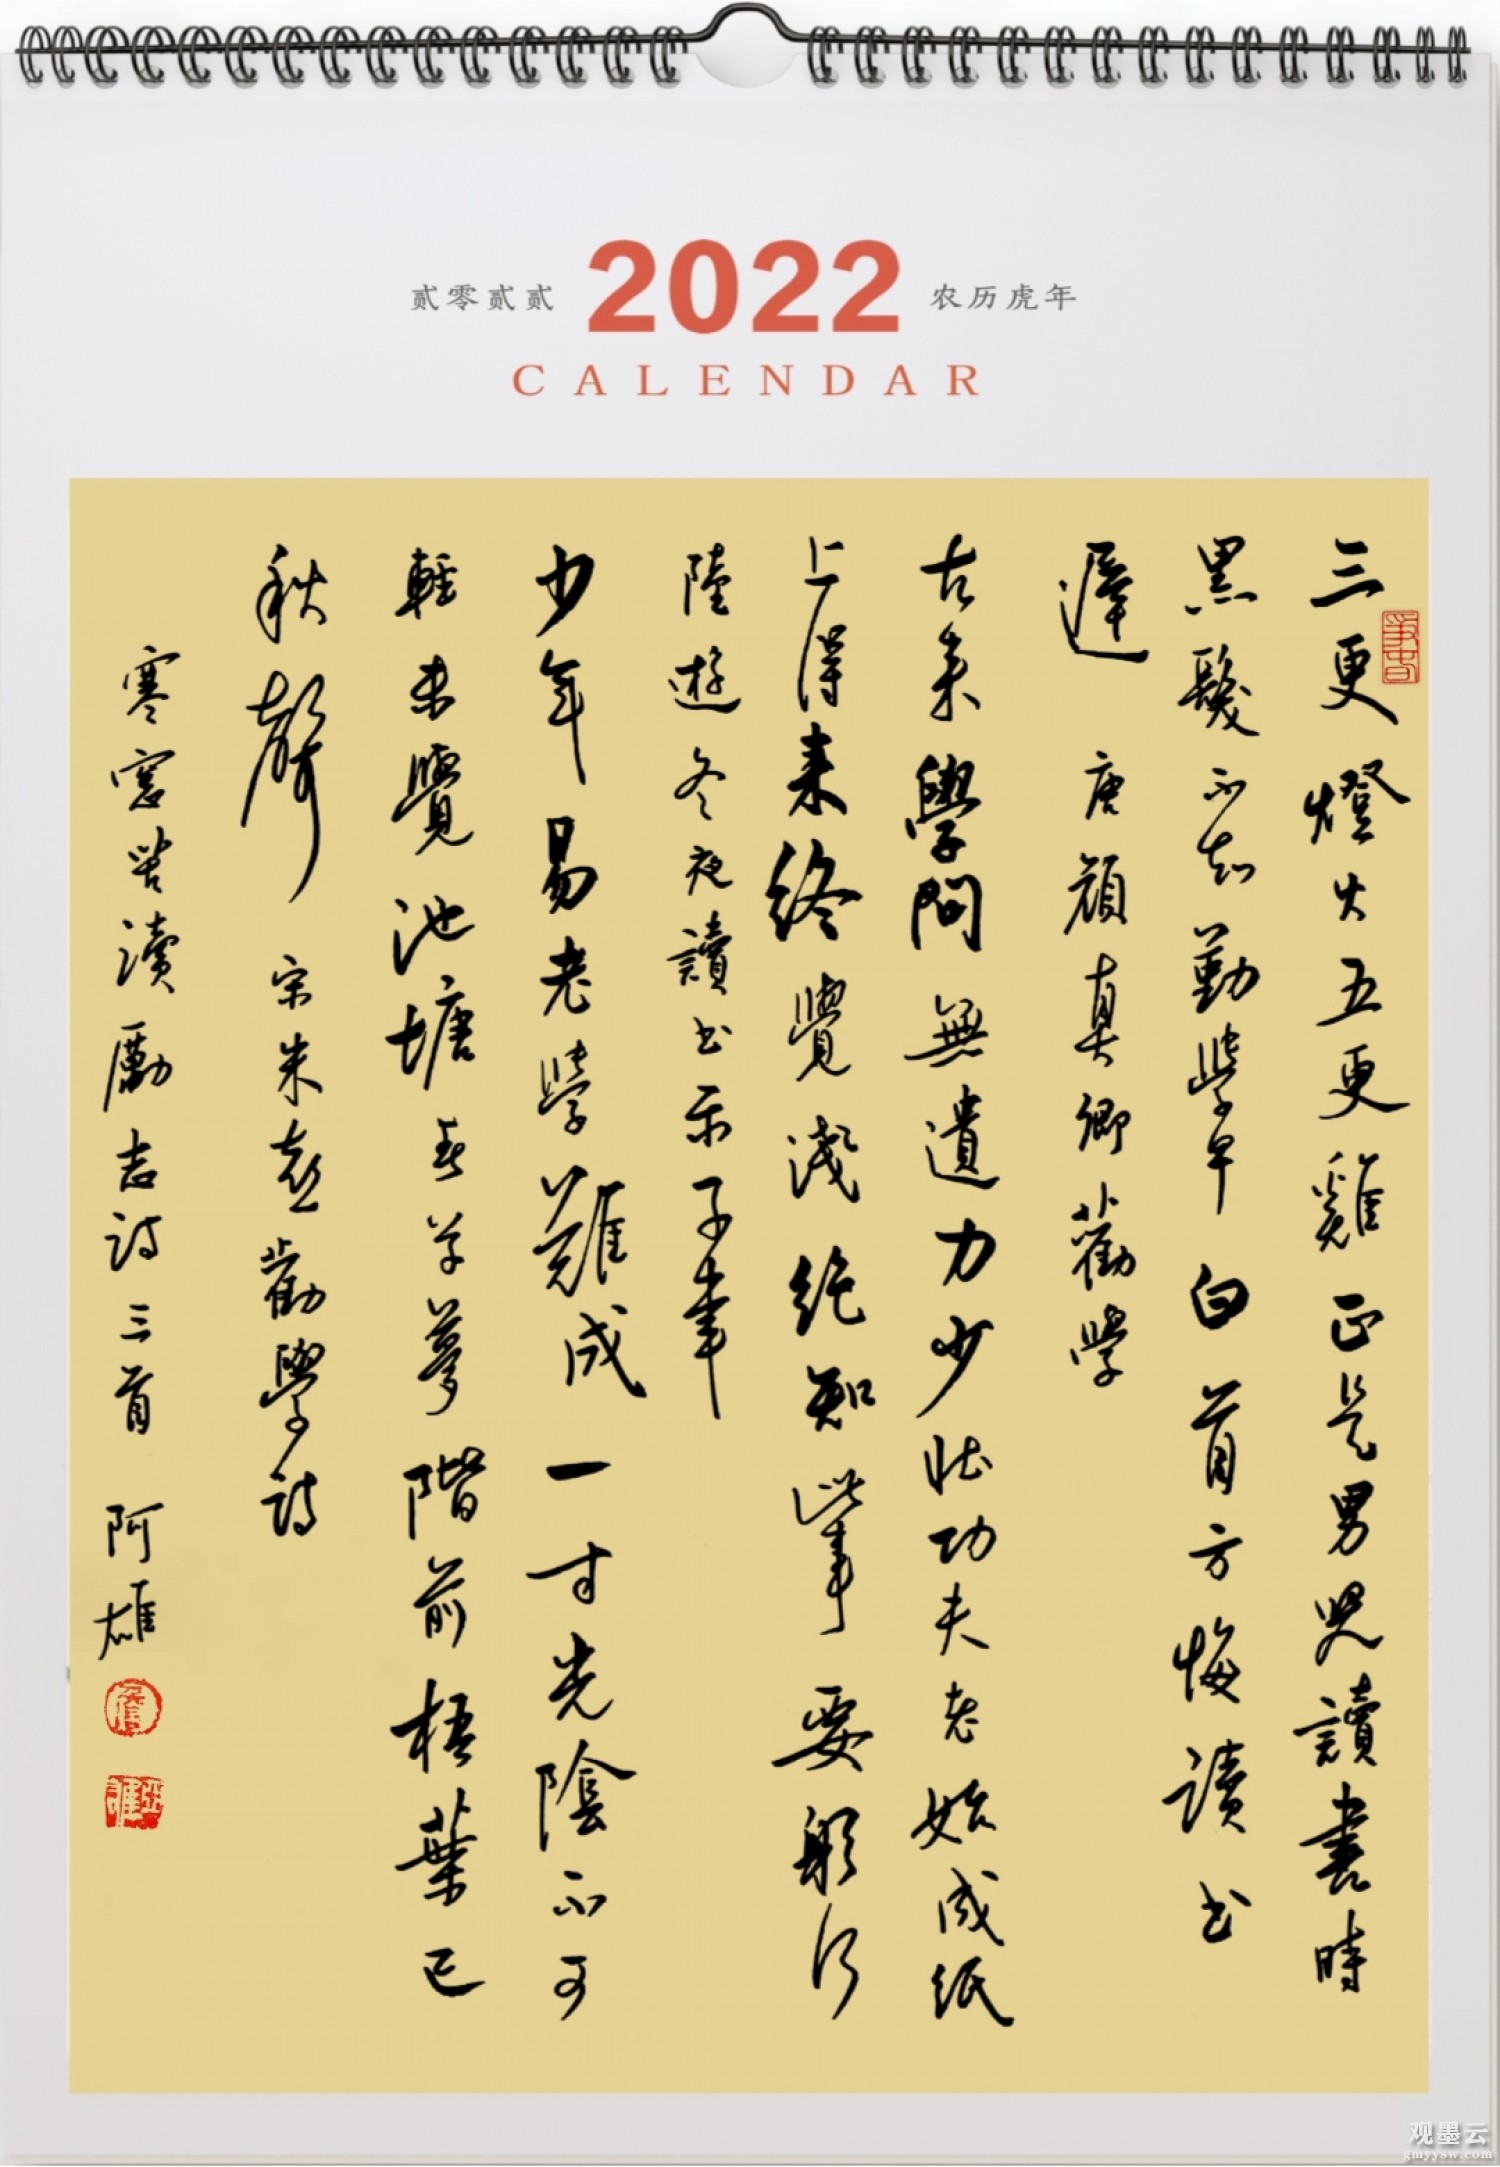 贰零贰贰 2022 农历虎年
CALENDAR
三更燈火五更雞正是男児讀書時
黑髮不知勤學早白首方悔讀书
遲 唐顏真卿勸學
古来學問無遺力少壯功夫老始成紙
上得来終覺淺絶知此事要躬行
陸遊冬夜讀书示子聿
少年易老學難成一寸光陰不可
輕未覺池塘春草夢階前梧葉已
秋聲 宋朱熹勸學詩
寒窓苦讀勵志詩三首 阿雄
观墨云
gmyysw.com